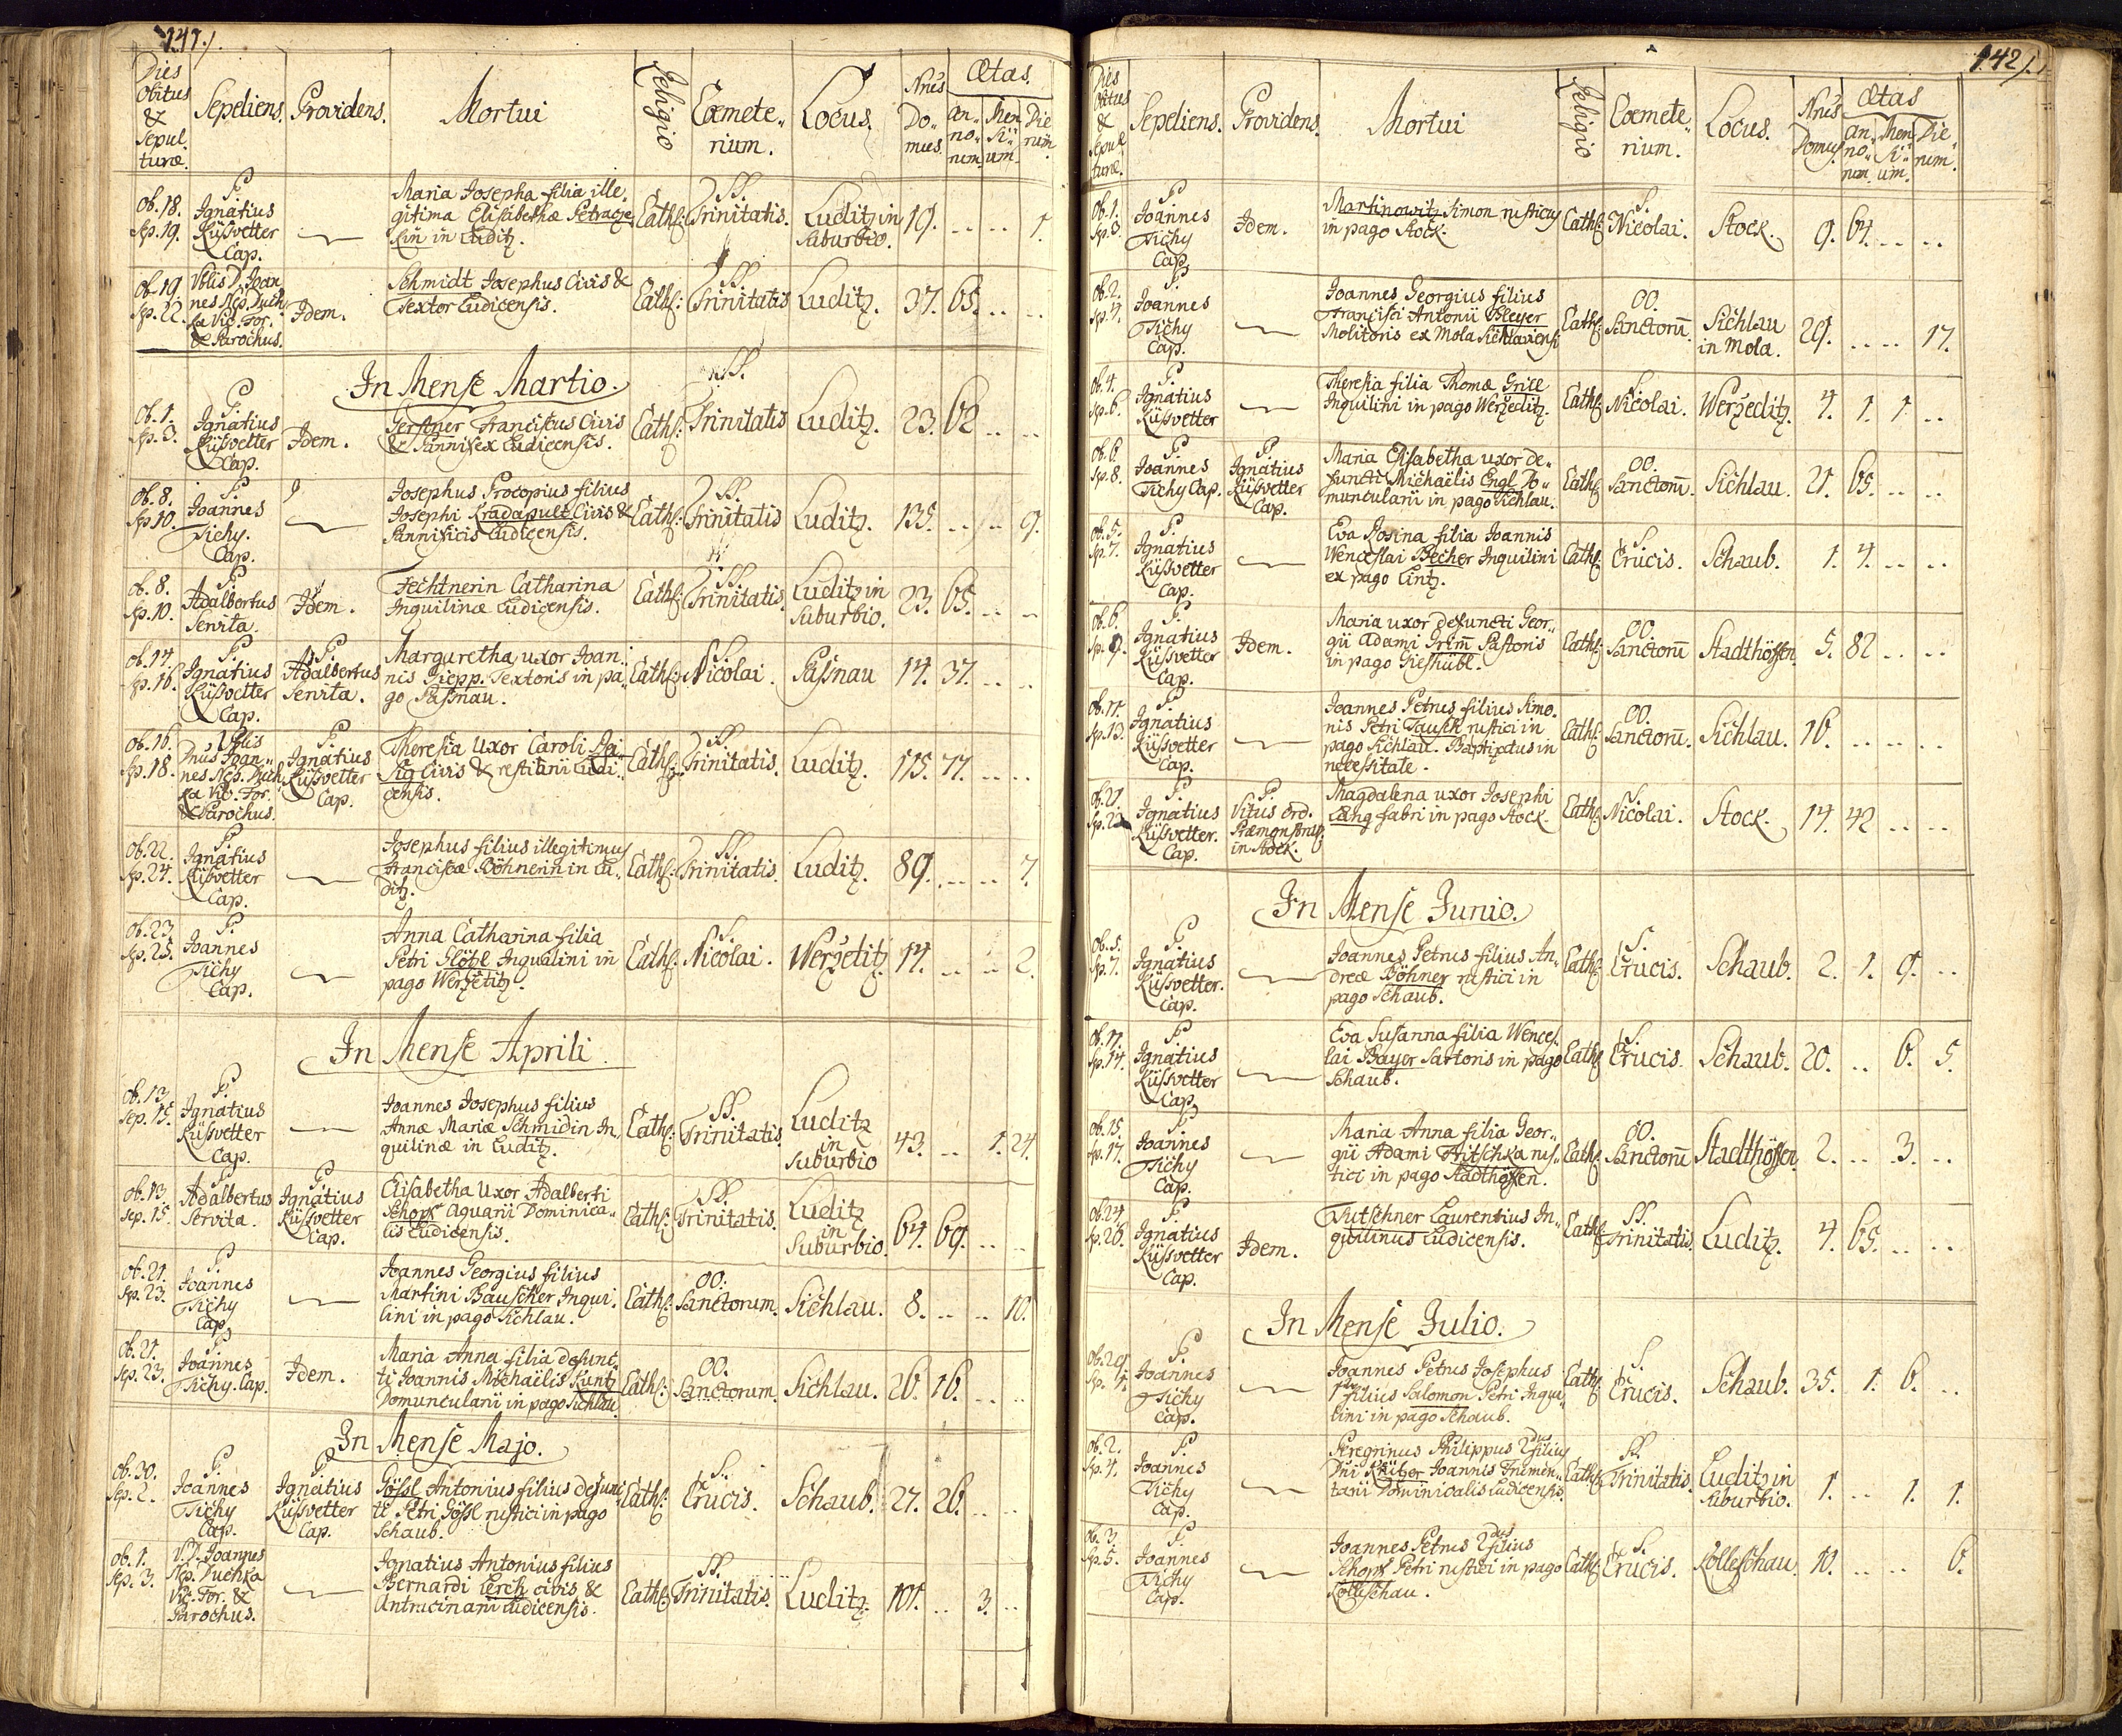 141./.
Dies Obitus & Sepulturæ. Sepeliens. Providens. Mortui Religio Cœmete„rium. Locus. Nrus Do„mus. Ætas. an„no„rum. Men„si„um. Die„rum.
ob. 18. Sp. 19. P. Ignatius Küssvetter Cap. Maria Josepha filia ille„
gitima Elisabethæ
in Luditz. Cath: SS. Trinitatis. Luditz in Suburbio. 19. .. .. 1.
ob. 19. Sp. 22. Vblis D. Joan nes Nep. Vic. For. & Parochus. Idem. Schmidt Josephus Civis &
Textor Ludicensis. Cath: SS. Trinitatis Luditz. 37. 65. .. ..
In Mense Martio.
ob. 1. Sp. 3. P. Ignatius Küssvetter Cap. Idem. Gerstner Franciscus Civis
& Pannifex Ludicensis. Cath: SS. Trinitatis Luditz. 23. 62 .. ..
ob. 8. Sp. 10. P. Joannes Tichy. Cap. Josephus Procopius filius
Josephi Kradapult Civis &
Pannificis Ludicensis. Cath: SS. Trinitatis Luditz. 135. .. .. 9.
ob. 8. Sp. 10. P. Adalbertus Servita. Idem. Fechtnerin Catharina
Inquilinæ Ludicensis. Cath: SS. Trinitatis. Luditz in Suburbio. 23. 65. .. ..
ob. 14. Sp. 16. P. Ignatius Küssvetter Cap. P. Adalbertus Servita. Margaretha uxor Joan„
nis Textoris in pa„
go Passnau. Cath: S. Nicolai. Passnau 14. 37. .. ..
ob. 16. Sp. 18. Vblis Dnus Joan„ nes Nep. Vic. For. & Parochus. P. Ignatius Küssvetter Cap. Theresia Uxor Caroli
Civis & Ludi„
censis. Cath: SS. Trinitatis. Luditz. 115. 77. .. ..
ob. 22. Sp. 24. P. Ignatius Küssvetter Cap. Josephus filius illegitimus
Franciscæ Böhnerin in Lu„
ditz. Cath: SS. Trinitatis. Luditz. 89. .. .. 7.
ob. 23. Sp. 25. P. Joannes Tichy Cap. Anna Catharina filia
Petri Glötzl Inqualini in
pago Werzetitz. Cath: S. Nicolai. Werzetitz 14. .. .. 2.
In Mense Aprili.
ob. 13. Sep. 15. P. Ignatius Küssvetter Cap. Joannes Josephus filius
Annæ Mariæ Schmidin In„
quilinæ in Luditz. Cath: SS. Trinitatis. Luditz in Suburbio 43. .. 1. 24.
ob. 13. Sep. 15. P. Adalbertus Servita. P. Ignatius Küssvetter Cap. Elisabetha Uxor Adalberti
Schopf Aquarii Dominica„
lis Ludicensis. Cath: SS. Trinitatis. Luditz in Suburbio. 64. 69. .. ..
ob. 21. Sp. 23. P. Joannes Tichy Cap. Joannes Georgius filius
Martini Bauscher Inqui„
lini in pago Sichlau. Cath: OO. Sanctorum. Sichlau. 8. .. .. 10.
ob. 21. Sep. 23. P. Joannes Tichy. Cap. Idem. Maria Anna filia defunc„
ti Joannis Michaëlis Kuntz
Domuncularii in pago Sichlau. Cath: OO. Sanctorum. Sichlau. 26. 16. .. ..
In Mense Majo.
ob. 30. Sep. 2. P. Joannes Tichy Cap. P. Ignatius Küssvetter Cap. Gössl Antonius filius defunc
ti Petri Gössl rustici in pago
Schaub. Cath: S. Crucis. Schaub. 27. 26. .. ..
ob. 1. Sep. 3. V. D. Joannes Nep. Vic. For. & Parochus. Ignatius Antonius filius
Bernardi Lerch civis &
Ludicensis. Cath: SS. Trinitatis. Luditz. 101. .. 3. ..
142./.
Dies Obitus & Sepul„turæ. Sepeliens. Providens. Mortui Religio Cœmete„rium. Locus. Nrus Domus. Ætas an„no„rum. Men„si„um. Die„rum.
ob. 1. Sp. 3. P. Joannes Tichy Cap. Idem. Martinowitz Simon rusticus
in pago Stock. Cath: S. Nicolai. Stock. 9. 64. .. ..
ob. 2. Sp. 4. P. Joannes Tichy Cap. Joannes Georgius filius
Francisci Antonii Bleyer
Molitoris ex Mola Sichlaviensi Cath: OO. Sanctorū. Sichlau in Mola. 29. .. .. 17.
ob. 4. Sp. 6. P. Ignatius Küssvetter Theresia filia Thomæ Grill
Inquilini in pago Werzeditz. Cath: S. Nicolai. Werzeditz. 4. 1. 1. ..
ob. 6. Sp. 8. P. Joannes Tichy Cap. P. Ignatius Küssvetter Cap. Maria Elisabetha uxor de„
functi Michaëlis Engl Do„
muncularii in pago Sichlau. Cath: OO. Sanctorū. Sichlau. 21. 65. .. ..
ob. 5. Sp. 7. P. Ignatius Küssvetter Cap. Eva Rosina filia Joannis
Wenceslai Becher Inquilini
ex pago Lintz. Cath: S. Crucis. Schaub. 1. 4. .. ..
ob. 6. Sp. 9. P. Ignatius Küssvetter Cap. Idem. Maria uxor defuncti Geor„
gii Adami Grim̄ Pastoris
in pago Gieshübl. Cath: OO. Sanctorū Stadthöffen. 5. 82 .. ..
ob. 11. Sp. 13. P. Ignatius Küssvetter Cap. Joannes Petrus filius Simo„
nis Petri Tausch rustici in
pago Sichlau. Baptizatus in
necessitate. Cath: OO. Sanctorū. Sichlau. 16. .. .. ..
ob. 21. Sp. 23 P. Ignatius Küssvetter. Cap. P. Vitus Ord. Præmonstrat. in Stock. Magdalena uxor Josephi
Lang fabri in pago Stock. Cath: S. Nicolai. Stock. 14. 42 .. ..
In Mense Junio.
ob. 5. Sp. 7. P. Ignatius Küssvetter. Cap. Joannes Petrus filius An„
dreæ Böhner rustici in
pago Schaub. Cath: S. Crucis. Schaub. 2. 1. 9. ..
ob. 17. Sp. 14. P. Ignatius Küssvetter Cap. Eva Susanna filia Wences„
lai Bayer Sartoris in pago
Schaub. Cath: S. Crucis. Schaub. 20. .. 6. 5.
ob. 15. Sp. 17. P. Joannes Tichy Cap. Maria Anna filia Geor„
gii Adami rus„
tici in pago Stadthöfen. Cath: OO. Sanctorū Stadthöffen. 2. .. 3. ..
ob. 24. Sp. 26. P. Ignatius Küssvetter Cap. Idem. Tutschner Laurentius In„
quilinus Ludicensis. Cath: SS. Trinitatis. Luditz. 4. 65. .. ..
In Mense Julio.
ob. 29. Sp. 1. P. Joannes Tichy Cap. Joannes Petrus Josephus
filius Salomon Petri Inqui„
lini in pago Schaub. Cath: S. Crucis. Schaub. 35. 1. 6. ..
ob. 2. Sp. 4. P. Joannes Tichy Cap. Peregrinus Philippus 2dus filius
Dni Joannis Frumen„
tarii Dominicalis Ludicensis. Cath: SS. Trinitatis. Luditz in Suburbio. 1. .. 1. 1.
ob. 3. Sp. 5. P. Joannes Tichy Cap. Joannes Petrus 2dus filius
Schopf Petri rustici in pago
Kolleschau. Cath: S. Crucis. Kolleschau. 10. .. .. 6.